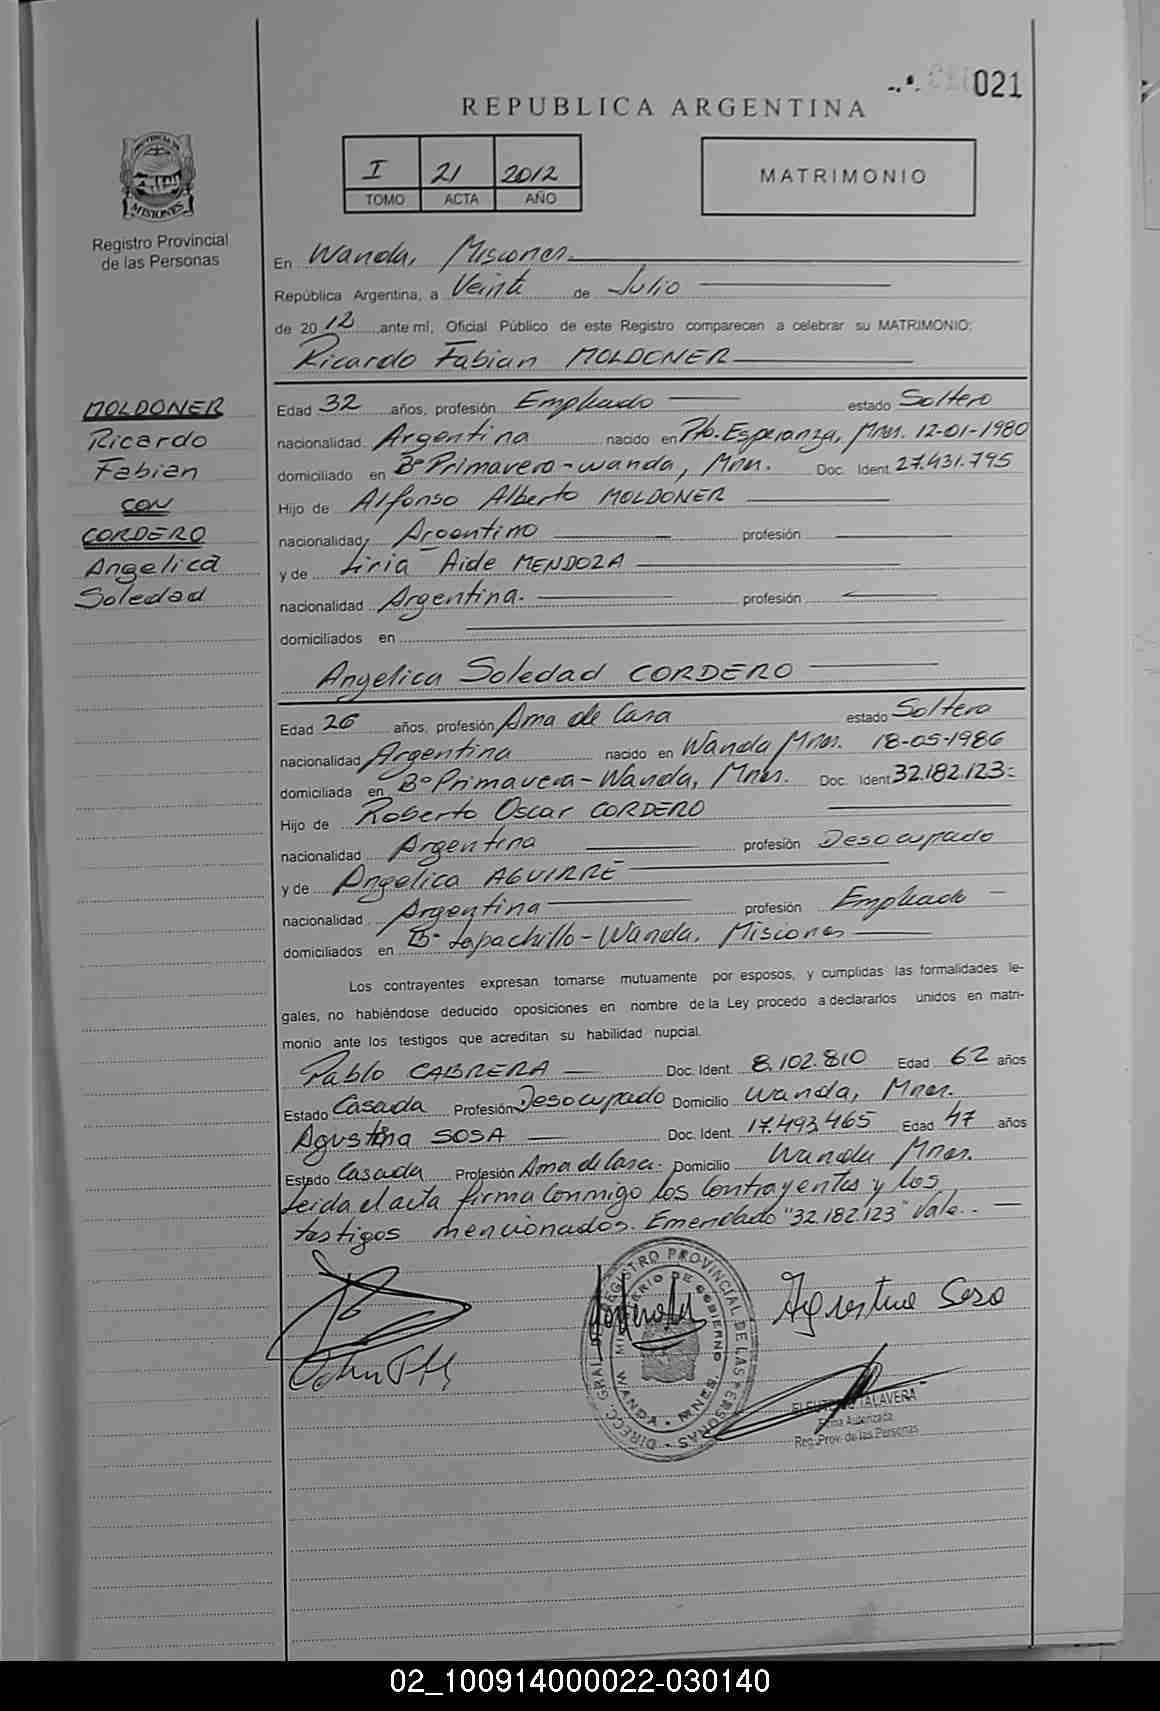 021
REPUBLICA ARGENTINA
I 21 2012
TOMO ACTA AÑO
MATRIMONIO
PROVINCIA DE
MISIONES
Registro Provincial
de las Personas
En Wanda, Misiones.
República Argentina, a Veinte de Julio
de 2012 ,ante mí, Oficial Público de este Registro comparecen a celebrar su MATRIMONIO:
Ricardo Fabian MOLDONER
MOLDONER
Ricardo
Fabian
CON
CORDERO
Angelica
Soledad
Edad 32 años, profesión Empleado estado Soltero
nacionalidad Argentina nacido en Pto. Esperanza, Mnes. 12-01-1980
domiciliado en Bº Primavera - Wanda, Mnes. Doc. Ident. 27.431.795
Hijo de Alfonso Alberto MOLDONER
nacionalidad Argentino profesión
y de Liria Aide MENDOZA
nacionalidad Argentina. profesión
domiciliados en
Angelica Soledad CORDERO
Edad 26 años, profesión Ama de Casa estado Soltera
nacionalidad Argentina nacido en Wanda Mnes. 18-05-1986
domiciliada en Bº Primavera - Wanda, Mnes. Doc. Ident 32.182.123=
Hijo de Roberto Oscar CORDERO
nacionalidad Argentina profesión Desocupado
y de Angelica AGUIRRE
nacionalidad Argentina profesión Empleado -
domiciliados en Bº Lapachillo - Wanda, Misiones
Los contrayentes expresan tomarse mutuamente por esposos, y cumplidas las formalidades le-
gales, no habiéndose deducido oposiciones en nombre de la Ley procedo a declararlos unidos en matri-
monio ante los testigos que acreditan su habilidad nupcial.
Pablo CABRERA Doc. Ident. 8.102.810 Edad 62 años
Estado Casada Profesión Desocupado Domicilio Wanda, Mnes.
Agustina SOSA Doc. Ident. 17.493.465 Edad 47 años
Estado Casada Profesión Ama de Casa. Domicilio Wanda Mnes.
Leida el acta firma conmigo los contrayentes y los
testigos mencionados. Emendado "32.182.123" Vale.. —
Agustina Sosa
DIRECC. GRAL. REGISTRO PROVINCIAL DE LAS PERSONAS
MINISTERIO DE GOBIERNO
WANDA - MNES
TALAVERA
Firma Autorizada
Reg. Prov. de las Personas
02_100914000022-030140